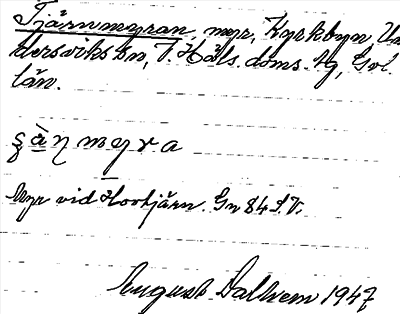 Tjärnmyran, myr, Kyrkbyn Un
dersviks sn, V. Häls. doms. hg, Gvl.
län.
myra
Myr vid Hortjärn. Gn 84 S.V.
August Dalkem 1947